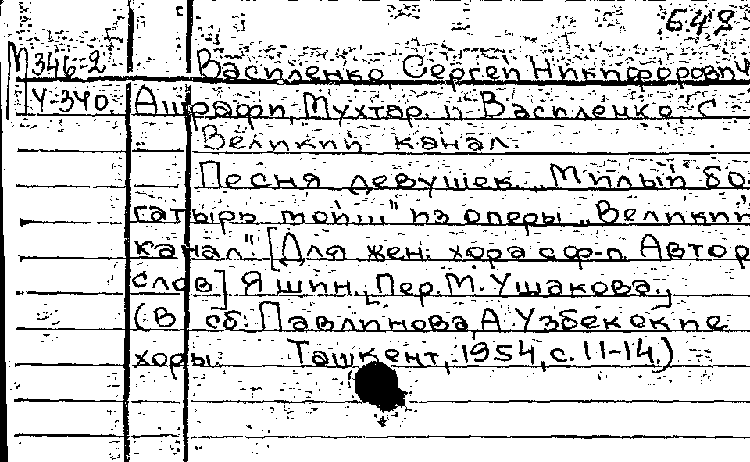 642
М346-2 Василенко, Сергей Никифорович
У-340. Ашрафи, Мухтар. и Василенко, С
Великий канал.
Песня девушек „Милый бо-
гатырь мой" из оперы „Великий
канал". [Для жен. хора с ф-п. Автор
слов] Яшин. [Пер. М. Ушакова.]
(В сб: Павлинова, А. Узбекские
хоры. Ташкент, 1954, с. 11-14.)